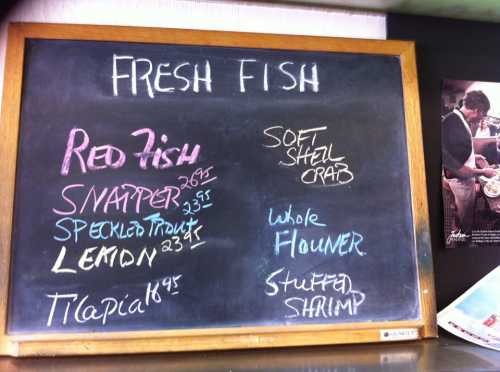 FRESH FISH
RED FISH
SNAPPER 26.95
SPECKLED TROUT 23.95
LEMON 23.95
TILAPIA 18.95
SOFT
SHELL
CRAB
Whole
FLOUNER
STUFFED
SHRIMP